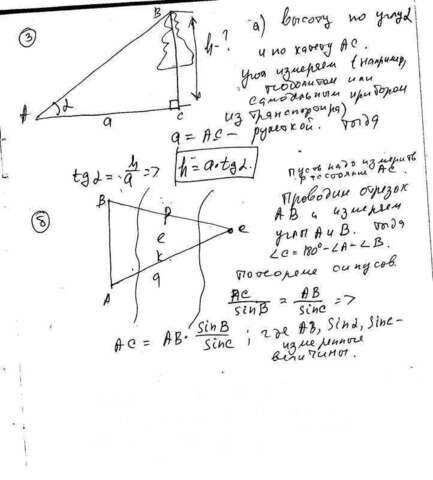 3
B
h - ?
A
α
a
C
а) высоту по углу α
и по катету AC.
Угол измеряем (например,
теодолитом или
самодельным прибором
из транспортира)
a = AC – рулеткой. Тогда
tgα = h/a => h = a·tgα.
б
B
р
е
к
а
A
C
Пусть надо измерить
расстояние AC.
Проводим отрезок
AB и измеряем
углы A и B. Тогда
∠C = 180° - ∠A - ∠B.
По теореме синусов
AC/sinB = AB/sinC =>
AC = AB · sinB/sinC ; где AB, Sinα, Sinc –
измеренные
величины.